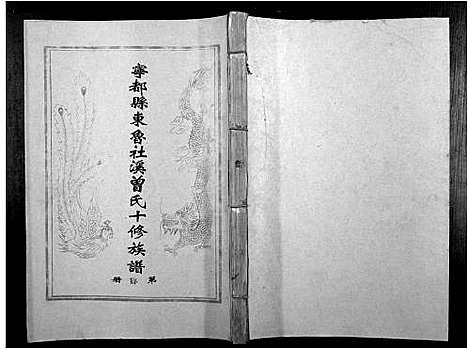 寧都縣東魯社溪曾氏十修族譜
第 册